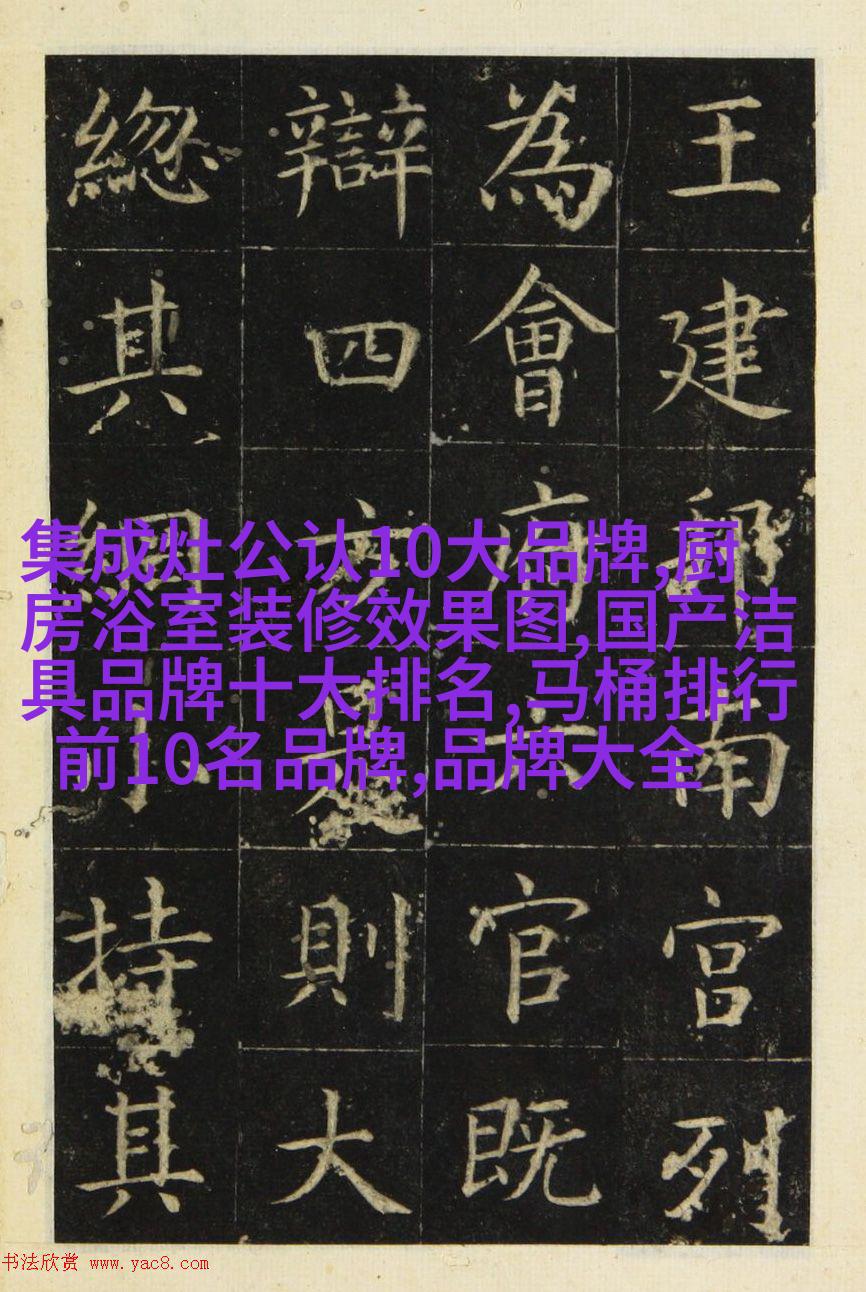 王建南宫列
為會府六官既
辯四方是則大
總其綱小持其
集成灶公认10大品牌,厨
房浴室装修效果图,国产洁
具品牌十大排名,马桶排行
前10名品牌,品牌大全
书法欣赏 www.yac8.com